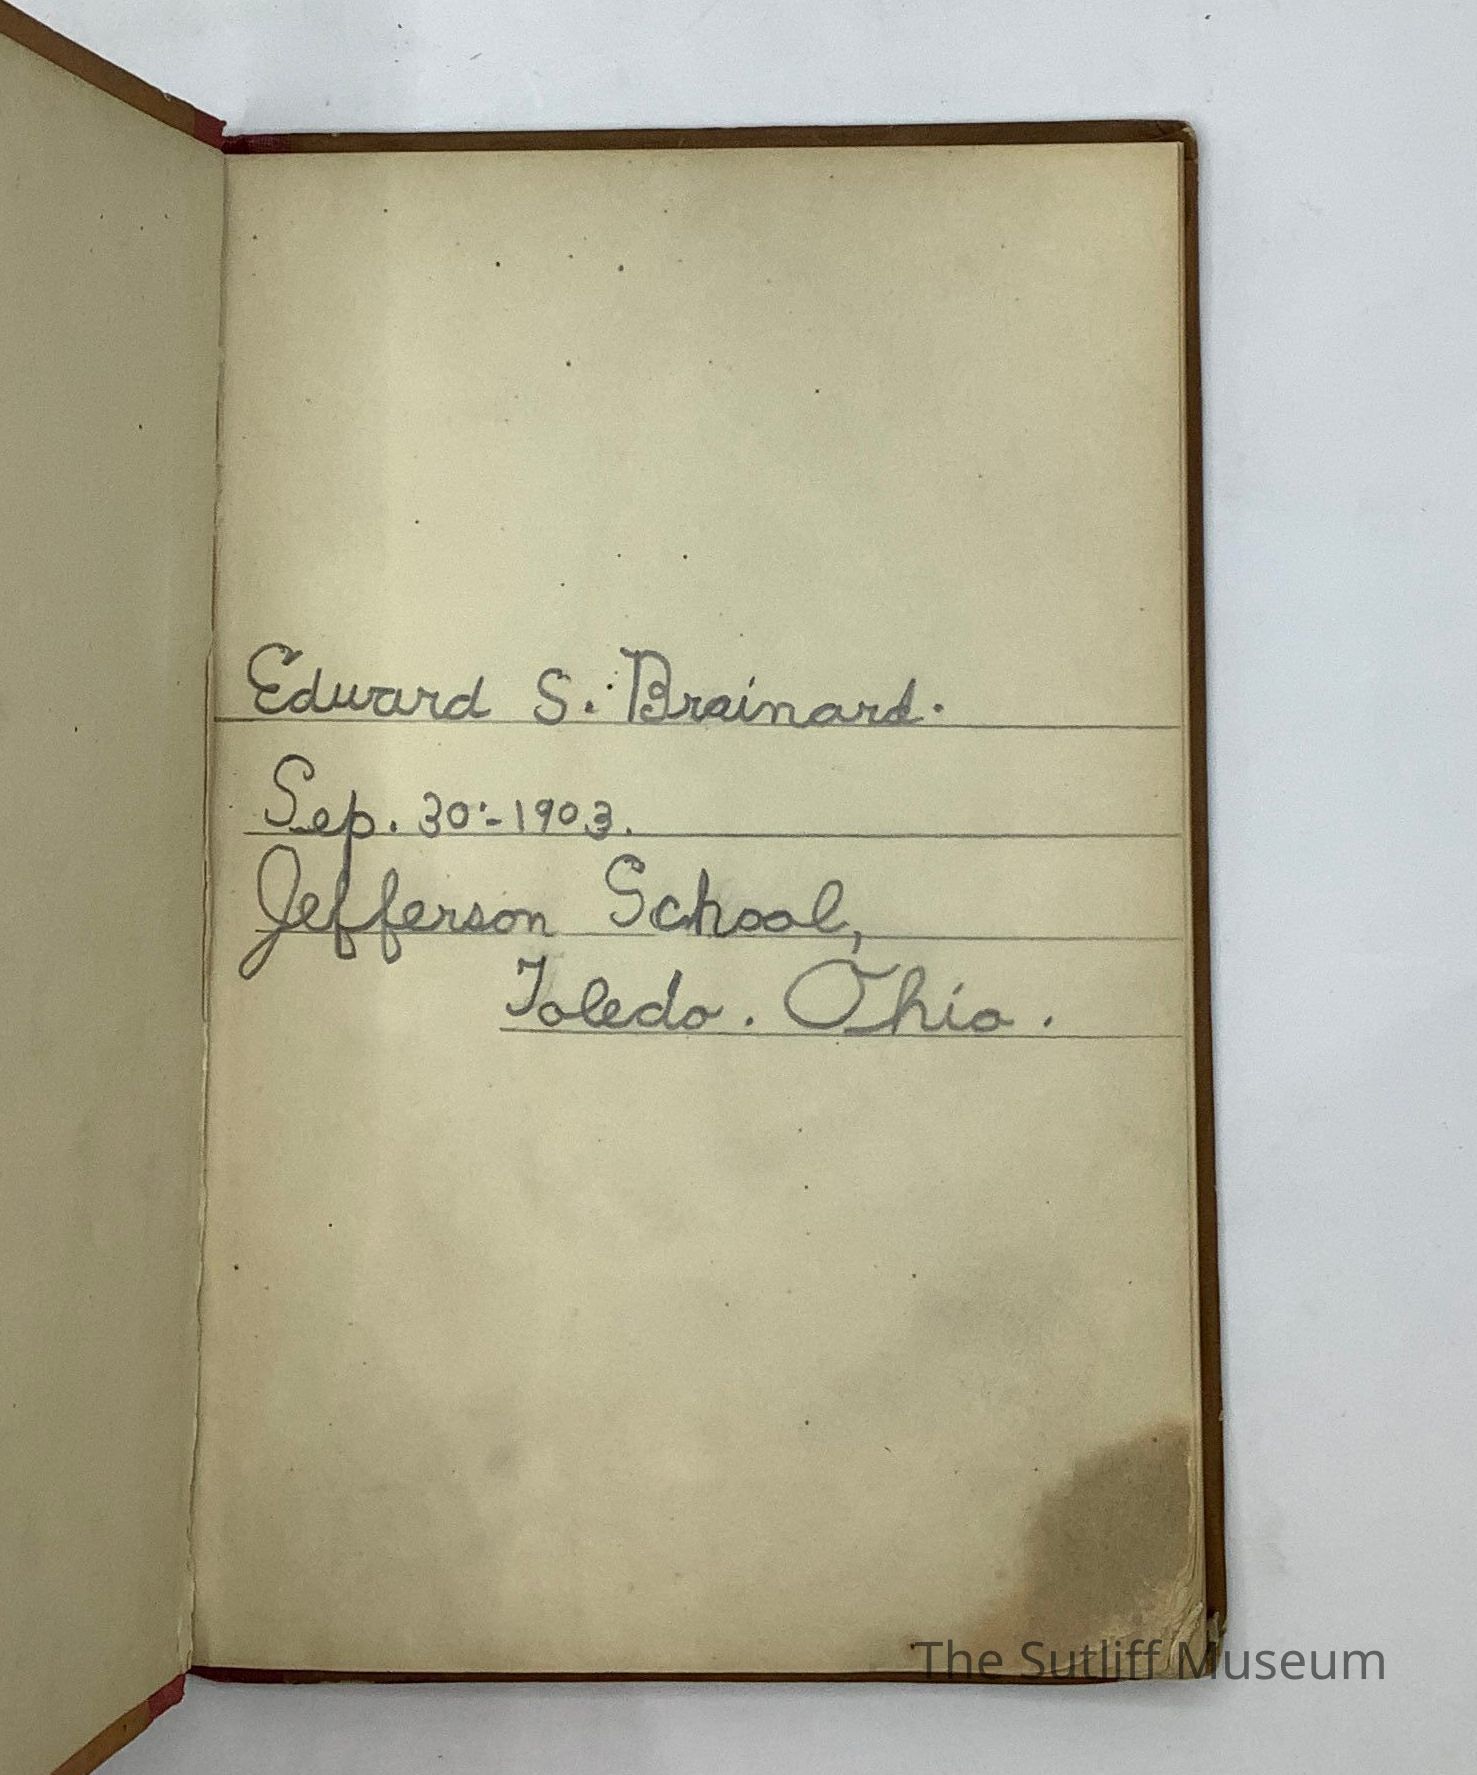 Edward S. Brainard.
Sep. 30:-1903.
Jefferson School,
Toledo. Ohio.
The Sutliff Museum